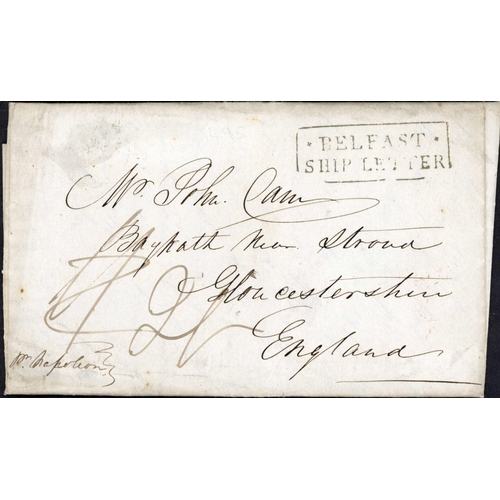 * BELFAST *
SHIP LETTER
Mr. John. Cam
Baypath Near Stroud
Gloucestershire
England
pr. Napoleon